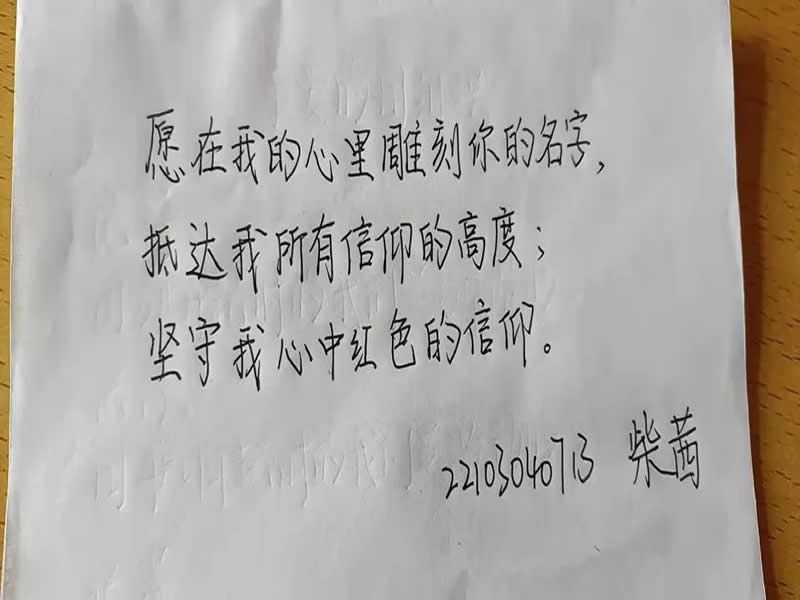 愿在我的心里雕刻你的名字,
抵达我所有信仰的高度;
坚守我心中红色的信仰。
22103040713 柴茜